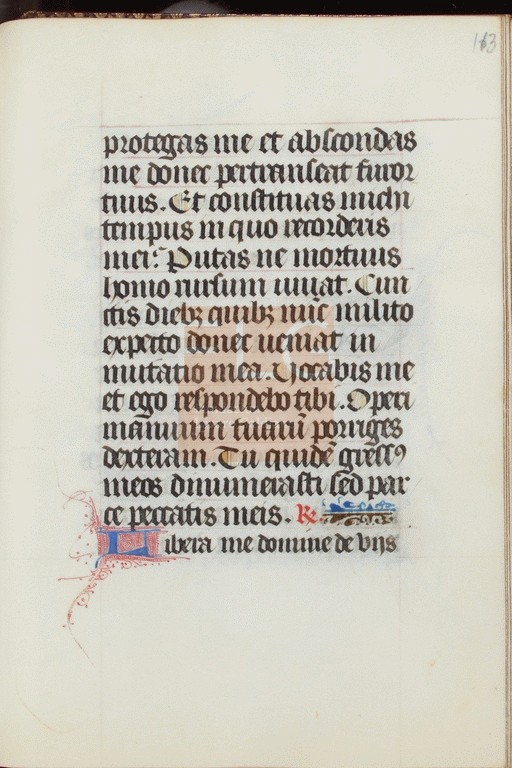 113
protegas me et abscondas
me donec pertranseat furor
tuus. Et constituas michi
tempus in quo recorderis
mei: Putas ne mortuus
homo rursum uiuat. Cun
ctis diebꝫ quibꝫ nūc milito
expecto donec ueniat in
mutatio mea. Vocabis me
et ego respondebo tibi. Operi
manuum tuarū porriges
dexteram. Tu quidē gressꝯ
meos dinumerasti sed par
ce peccatis meis. R.
Libera me domine de vijs